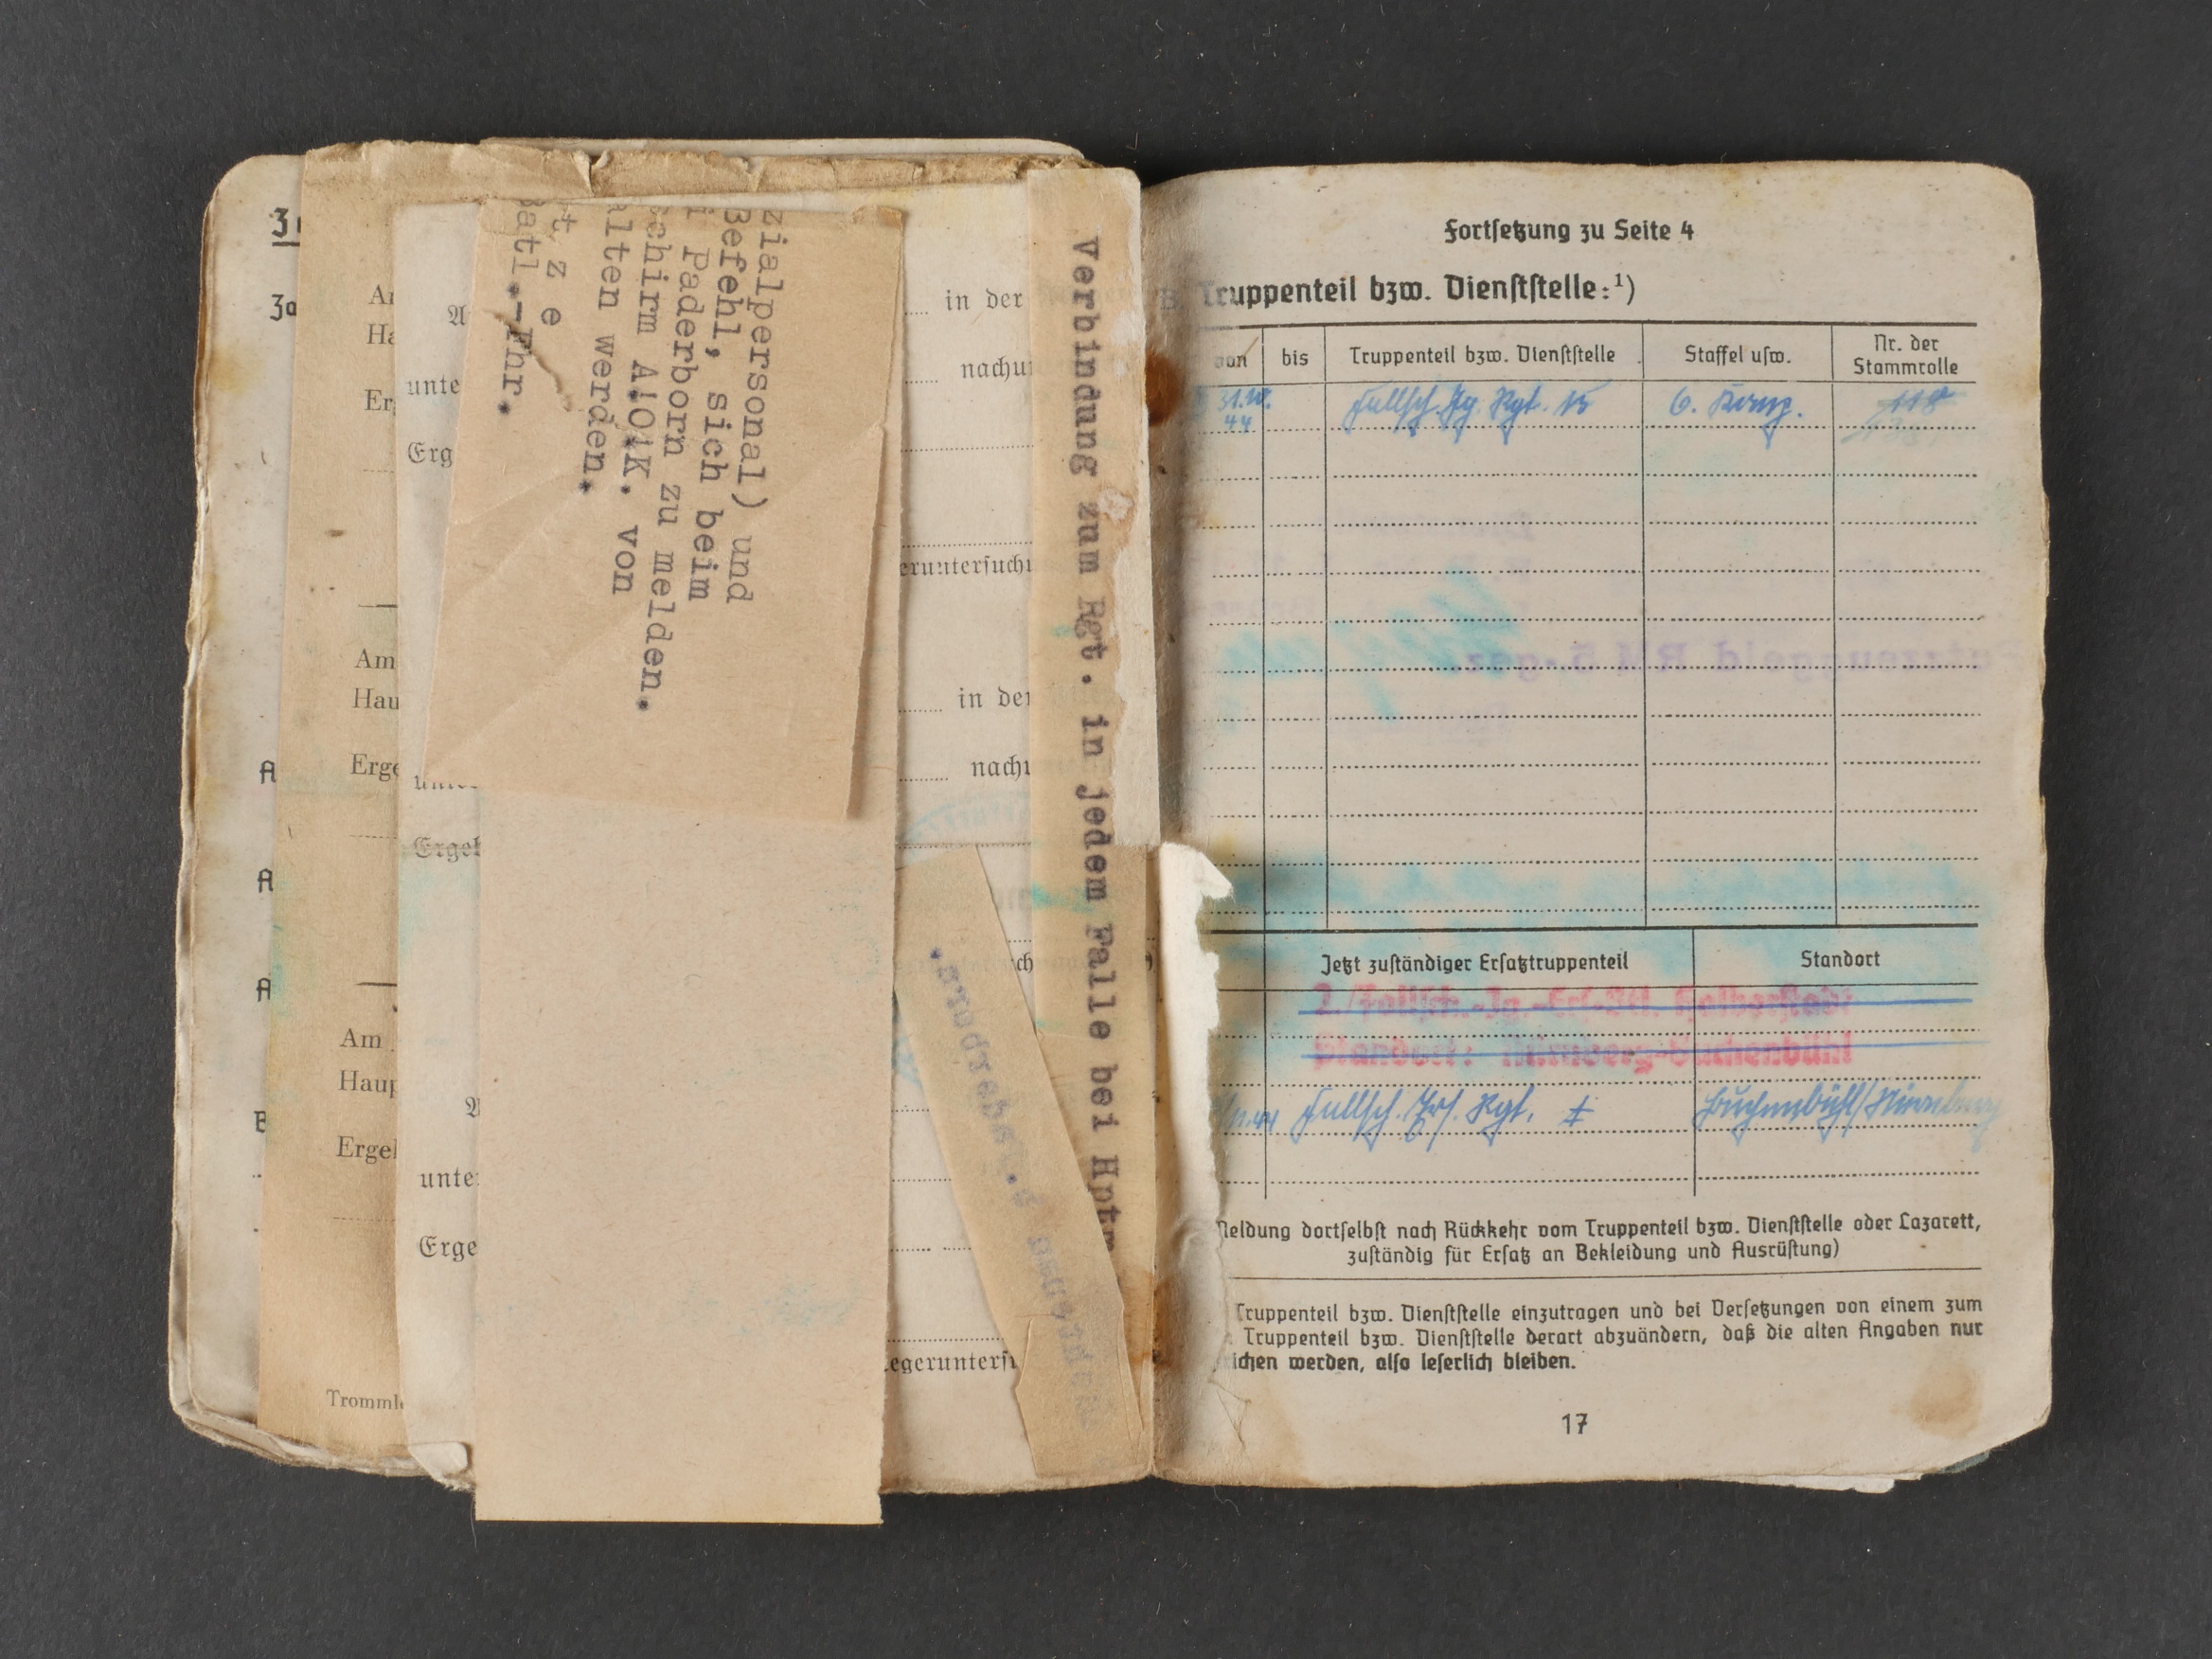 Am
Hau
Erge
Am
Hau
unte
Erg
unte
Erge
Trommle
in der
nachu
in der
nachu
zialpersonal) und
Befehl, sich beim
Paderborn zu melden.
schirm A.O.K. von
alten werden.
t z e
Batl.-Fhr.
Verbindung zum Rgt. in jedem Falle bei Hptm
Paderborn.
Fortsetzung zu Seite 4
Truppenteil bzw. Dienststelle:¹)
von bis Truppenteil bzw. Dienststelle Staffel usw. Nr. der Stammrolle
31.10. 44 Fallsch. Jg. Rgt. 15 6. Komp. 118
Jetzt zuständiger Ersatztruppenteil Standort
Fallsch.-Jg. Halberstadt
Standort: Nürnberg-Buchenbühl
Fallsch. Ers. Rgt. Buchenbühl/Nürnberg
Meldung dortselbst nach Rückkehr vom Truppenteil bzw. Dienststelle oder Lazarett,
zuständig für Ersatz an Bekleidung und Ausrüstung)
Truppenteil bzw. Dienststelle einzutragen und bei Versetzungen von einem zum
Truppenteil bzw. Dienststelle derart abzuändern, daß die alten Angaben nur
ichen werden, also leserlich bleiben.
17